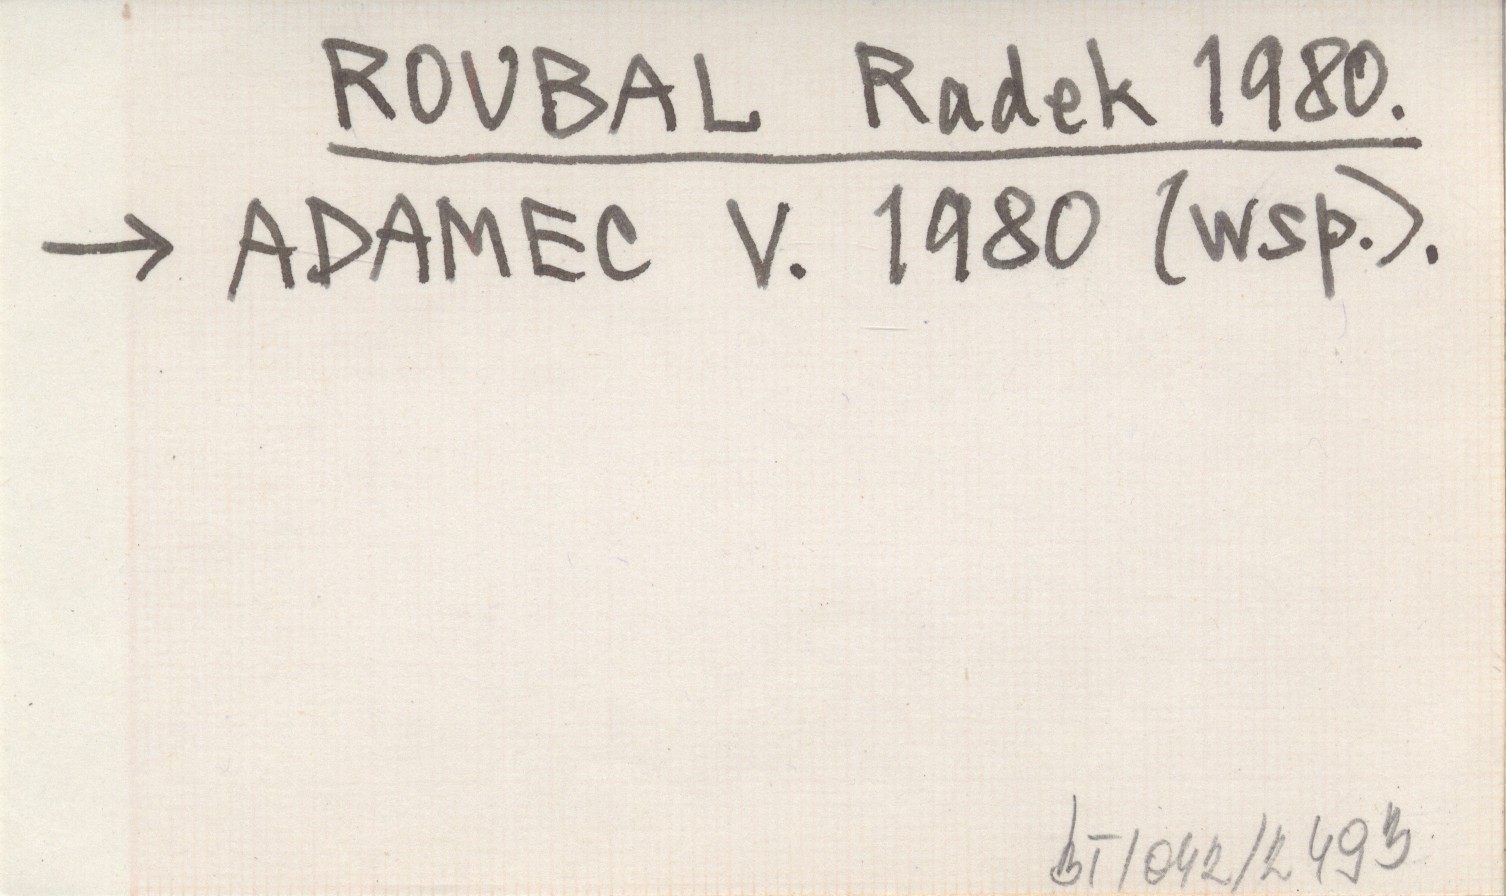 ROUBAL Radek 1980.
→ ADAMEC V. 1980 (wsp.).
bT/042/2493